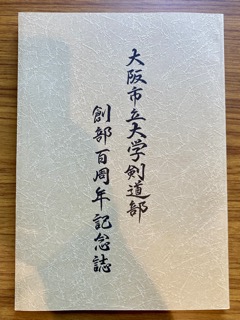 大阪市立大学剣道部
創部百周年記念誌